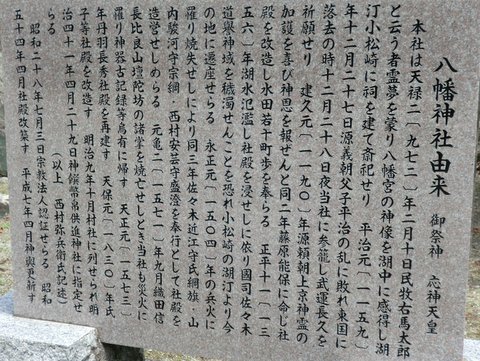 八幡神社由来　御祭神　応神天皇
本社は天禄二〔九七二〕年二月十日民牧右馬太郎
と云う者霊夢を蒙り八幡宮の神像を湖中に感得し湖
汀小松崎に祠を建て斎祀せり　平治元〔一一五九〕
年十二月二十七日源義朝父子平治の乱に敗れ東国に
落去の時十二月二十八日夜当社に参籠し武運長久を
祈願せり　建久元〔一一九〇〕年源頼朝上京神霊の
加護を喜び神恩を報ぜんと同二年藤原能保に命じ社
殿を改造し水田若干町歩を奉らる　正平十一〔一三
五六〕年湖水氾濫し社殿を浸せしに依り國司佐々木
道誉神域を穢濁せんことを恐れ小松崎の湖汀より今
の地に遷座せらる　永正元〔一五〇四〕年の兵火に
罹り焼失せしにより同三年佐々木近江守氏綱旗・山
内駿河守宗綱　西村安芸守盛澄を奉行として社殿を
造営せしめらる　元亀二〔一五七一〕年九月織田信
長比良山壇陀坊の諸堂を焼亡せしとき当社も災火に
罹り神器古記録等烏有に帰す　天正元〔一五七三〕
年丹羽長秀社殿を再建す　天保元〔一八三〇〕年氏
子等社殿を改造す　明治九年十月村社に列せられ明
治四十一年四月二十九日神饌幣帛供進神社に指定せ
らる　（以上　西村弥兵衛氏記述）
昭和二十八年七月三日宗教法人認証せらる　昭和
五十四年四月社殿改築す　平成七年四月神輿更新す